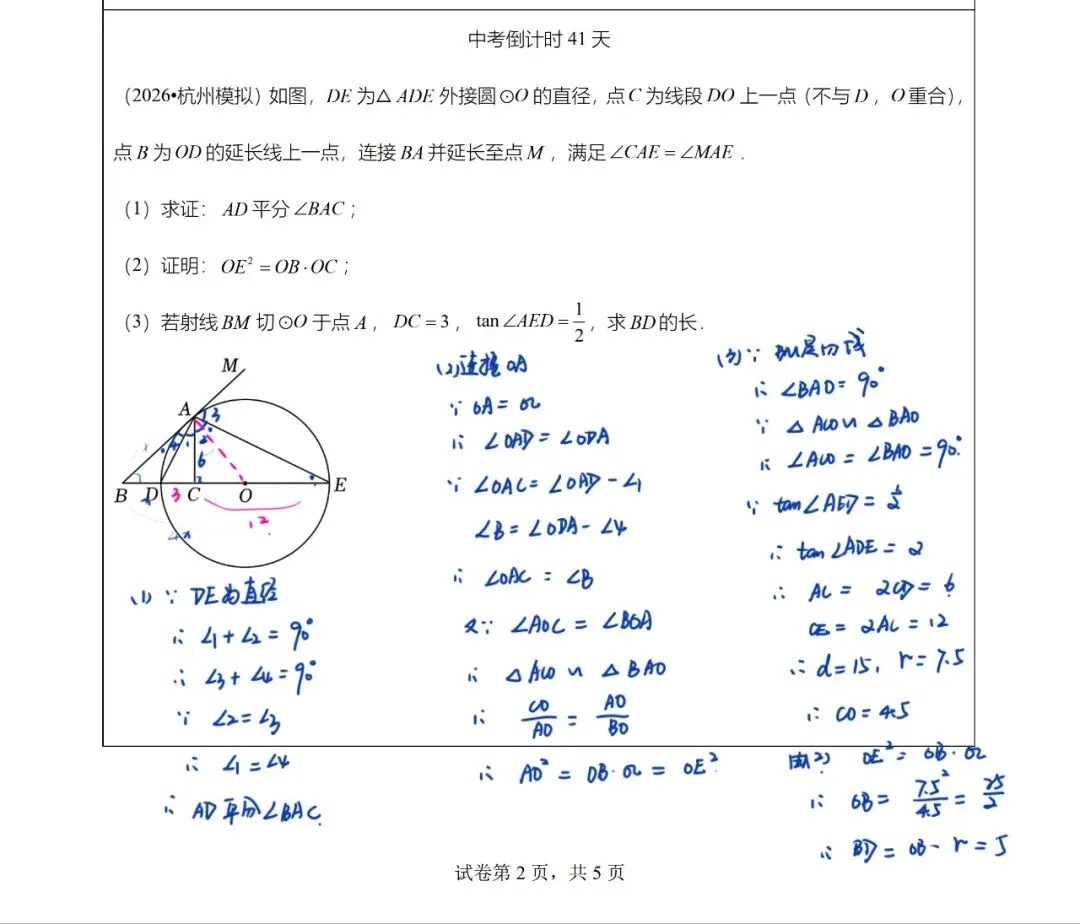 中考倒计时 41 天
(2026•杭州模拟) 如图，DE 为△ ADE 外接圆⊙O 的直径，点 C 为线段 DO 上一点（不与 D ，O 重合），
点 B 为 OD 的延长线上一点，连接 BA 并延长至点 M ，满足 ∠CAE = ∠MAE .
(1) 求证： AD 平分 ∠BAC ；
(2) 证明： OE² = OB · OC ；
(3) 若射线 BM 切⊙O 于点 A ， DC = 3 ， tan ∠AED = 1/2 ，求 BD 的长.
M
A
3
1
2
6
B
D
3
C
O
E
12
(1) ∵ DE为直径
∴ ∠1+∠2 = 90°
∴ ∠3+ ∠4 = 90°
∵ ∠2=∠3
∴ ∠1 = ∠4
∴ AD 平分∠BAC.
(2)连接 OA
∵ OA = OD
∴ ∠OAD = ∠ODA
∵ ∠OAC = ∠OAD - ∠1
∠B = ∠ODA - ∠4
∴ ∠OAC = ∠B
又∵ ∠AOC = ∠BOA
∴ △ACO ∽ △BAO
∴ CO/AO = AO/BO
∴ AO² = OB·OC = OE²
(3) ∵ BM是切线
∴ ∠BAO = 90°
∵ △ACO ∽ △BAO
∴ ∠ACO = ∠BAO = 90°
∵ tan∠AED = 1/2
∴ tan∠ADE = 2
∴ AC = 2CD = 6
CE = 2AC = 12
∴ d=15, r=7.5
∴ CO = 4.5
由(2) OE² = OB·OC
∴ OB = 7.5²/4.5 = 25/2
∴ BD = OB - r = 5
试卷第 2 页，共 5 页